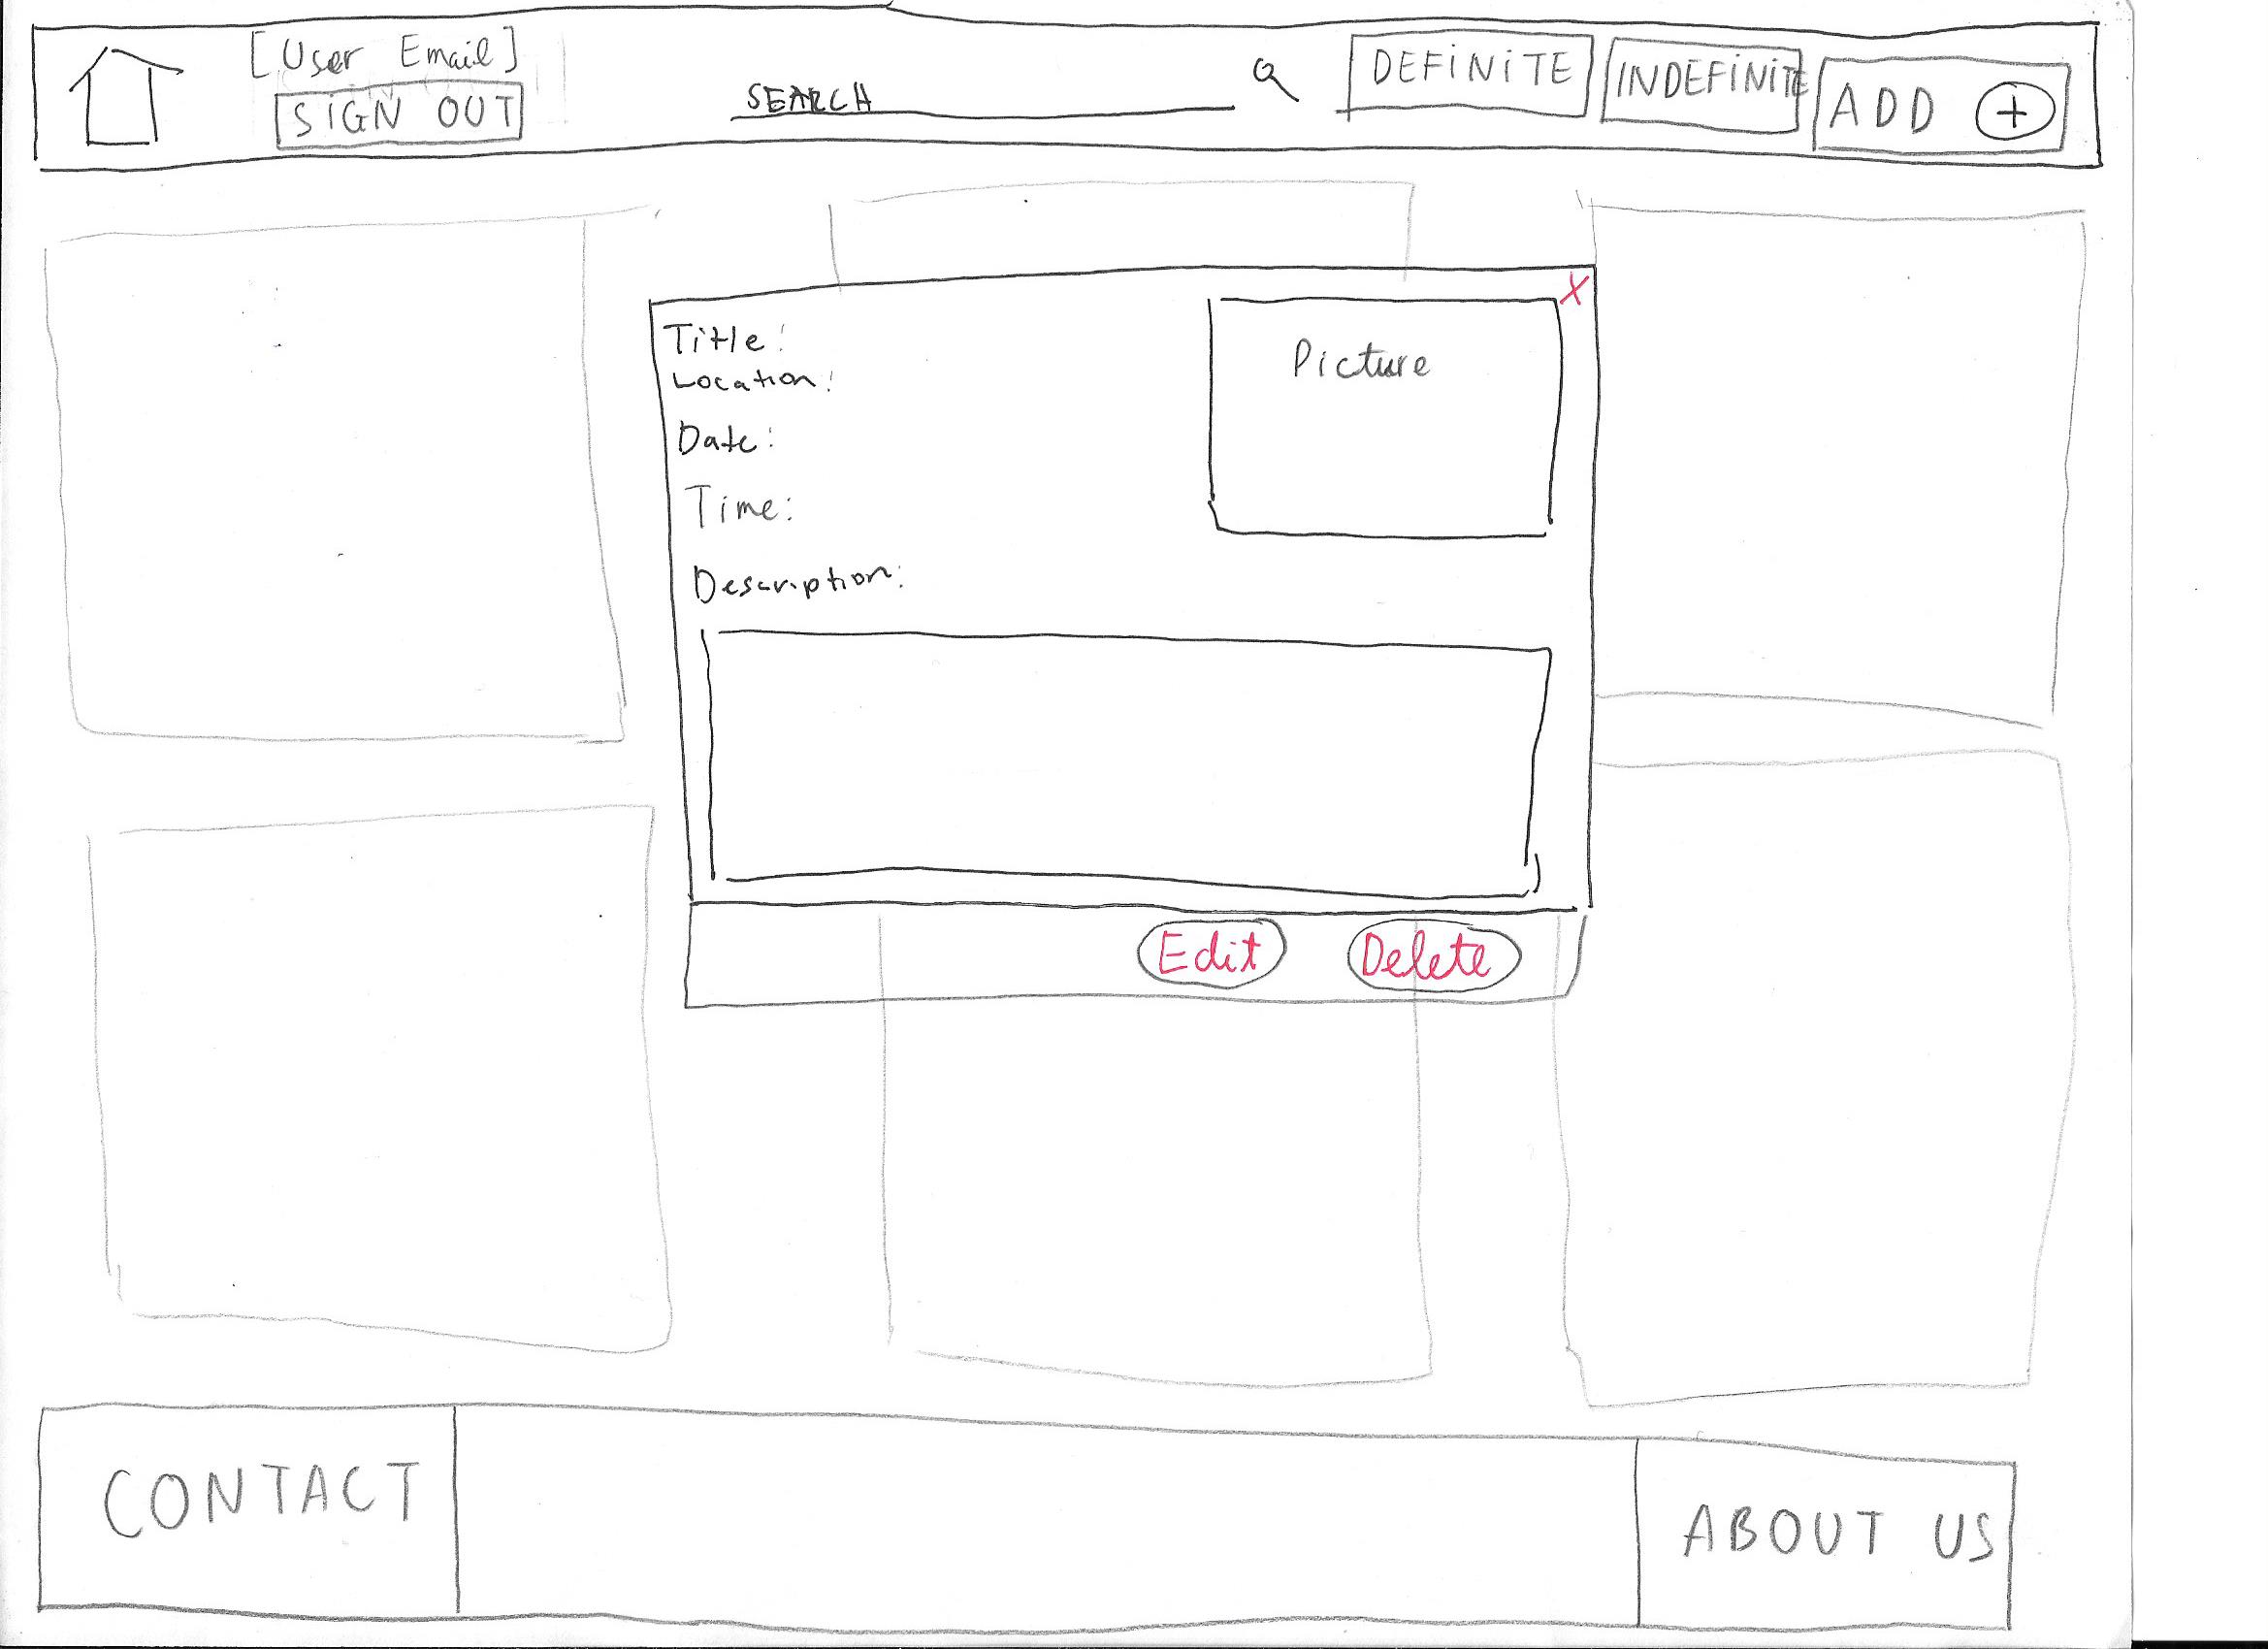 [User Email]
SIGN OUT
SEARCH
DEFINITE
INDEFINITE
ADD +
X
Title:
Location:
Date:
Time:
Description:
Picture
Edit
Delete
CONTACT
ABOUT US